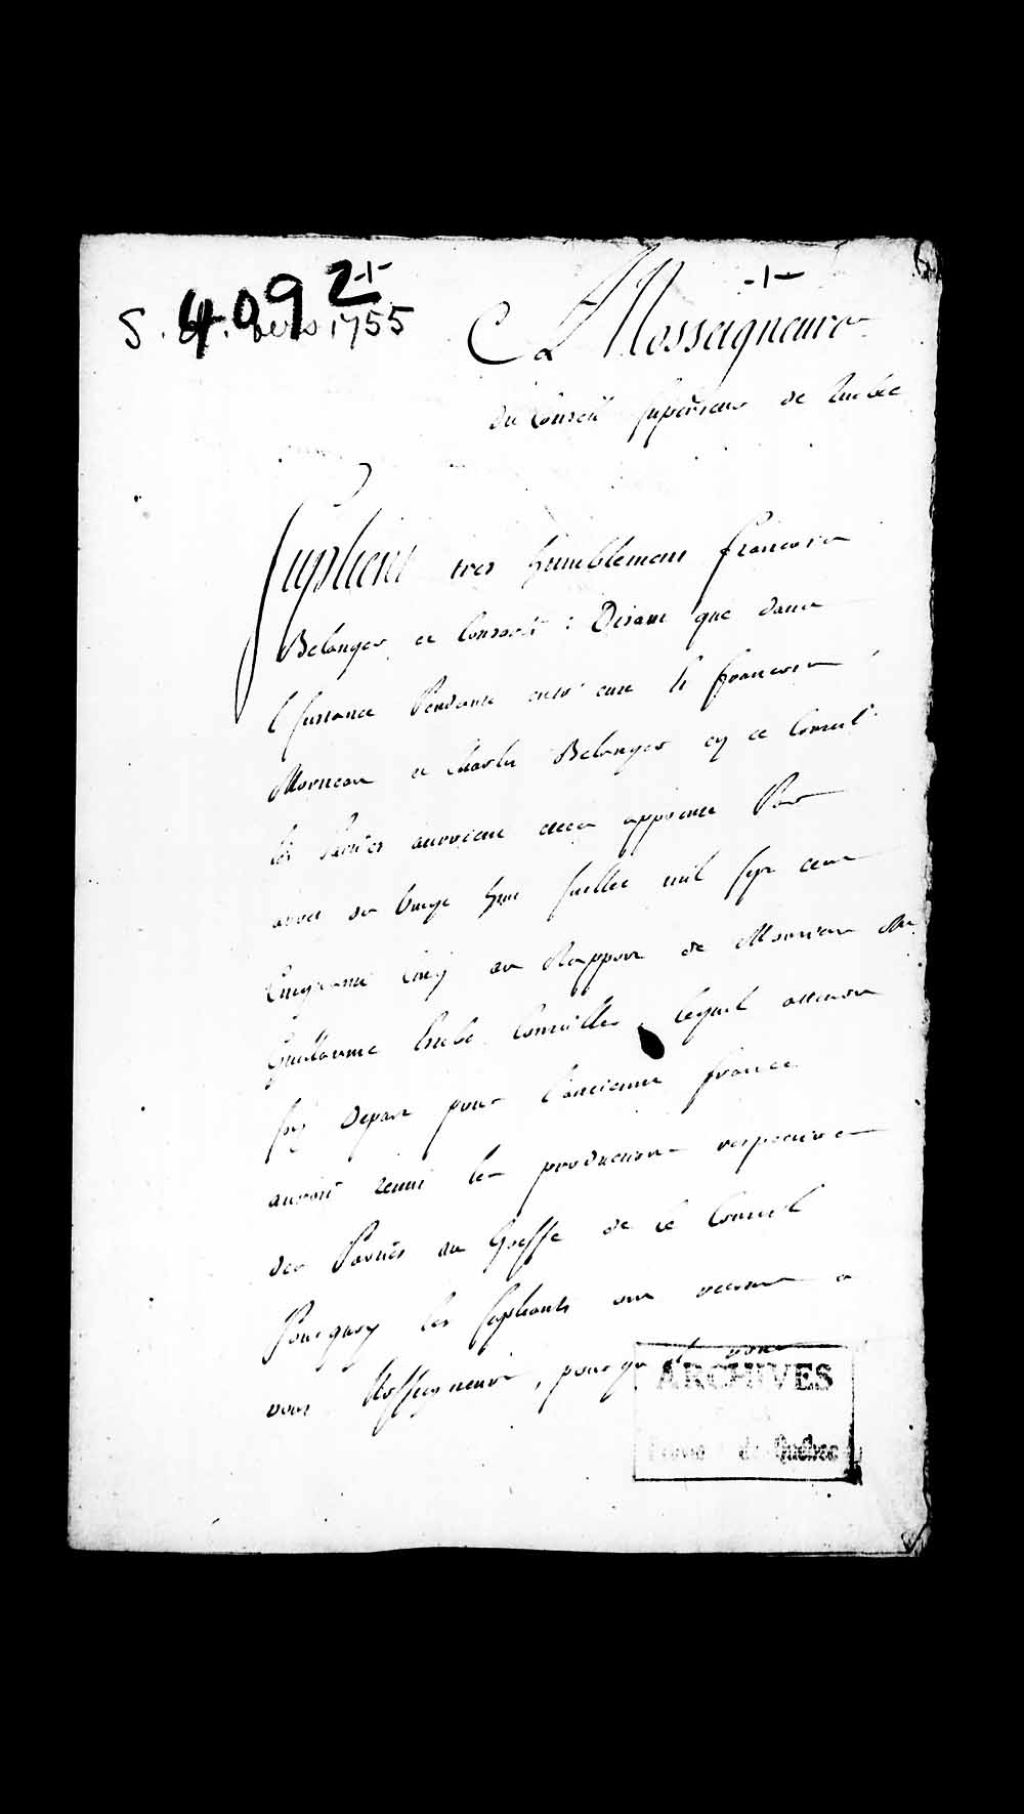 -1-
4092
S. d. vers 1755
A Nosseigneurs
du Conseil Superieur de Quebec
Suplient tres humblement francois
Belanger et Consorts : Disant que dans
l'Instance Pendante entr'eux & francois
Morneau et Charles Belanger en ce Conseil
les Parties auroient eté appointé Par
arret du Vingt huit Juillet mil sept cent
Cinquante Cinq au Rapport de Monsieur Me
Guillaume Estebe Conseiller, lequel attendu
son Depart pour l'ancienne france
auroit remis les productions respectives
des Parties au Greffe de ce Conseil
Pourquoy les Suplians ont recours a
vous Nosseigneurs, pour qu'il vous
ARCHIVES
de Québec